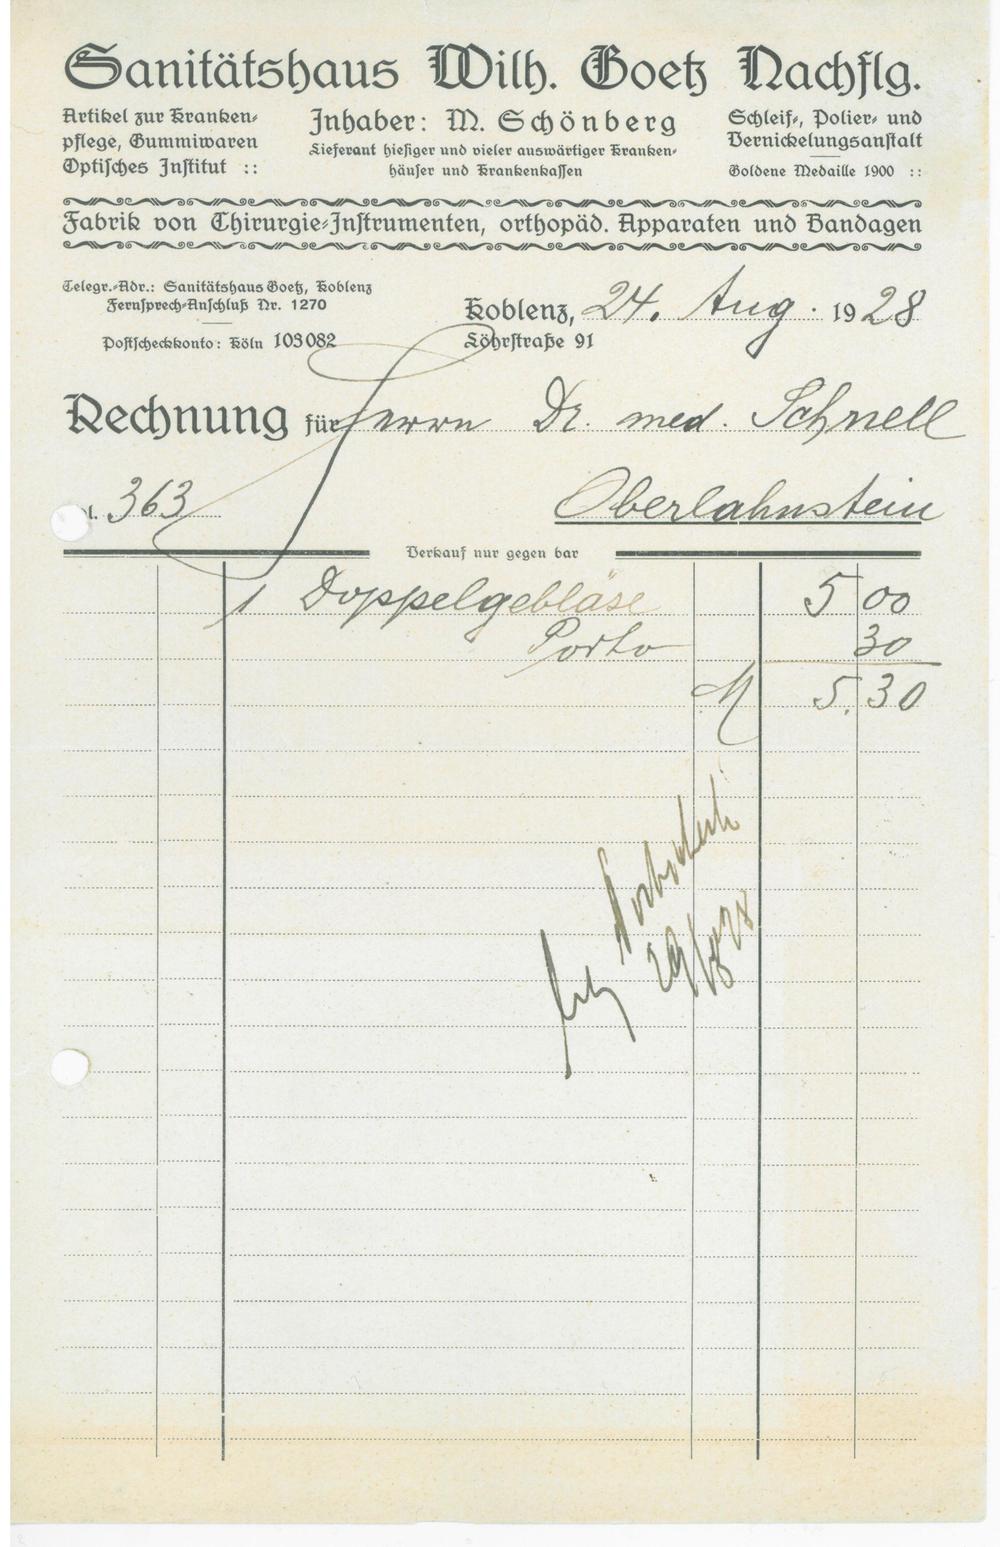 Sanitätshaus Wilh. Goetz Nachflg.
Artikel zur Kranken-
pflege, Gummiwaren
Optisches Institut ::
Inhaber: M. Schönberg
Lieferant hiesiger und vieler auswärtiger Kranken-
häuser und Krankenkassen
Schleif-, Polier- und
Vernickelungsanstalt
Goldene Medaille 1900 ::
Fabrik von Chirurgie-Instrumenten, orthopäd. Apparaten und Bandagen
Telegr.-Adr.: Sanitätshaus Goetz, Koblenz
Fernsprech-Anschluß Nr. 1270
Postscheckkonto: Köln 103082
Koblenz, 24. Aug. 1928
Löhrstraße 91
Rechnung für Herrn Dr. med. Schnell
363
Oberlahnstein
Verkauf nur gegen bar
1 Doppelgebläse 5 00
Porto 30
M 5.30
Postscheck
29/8 28